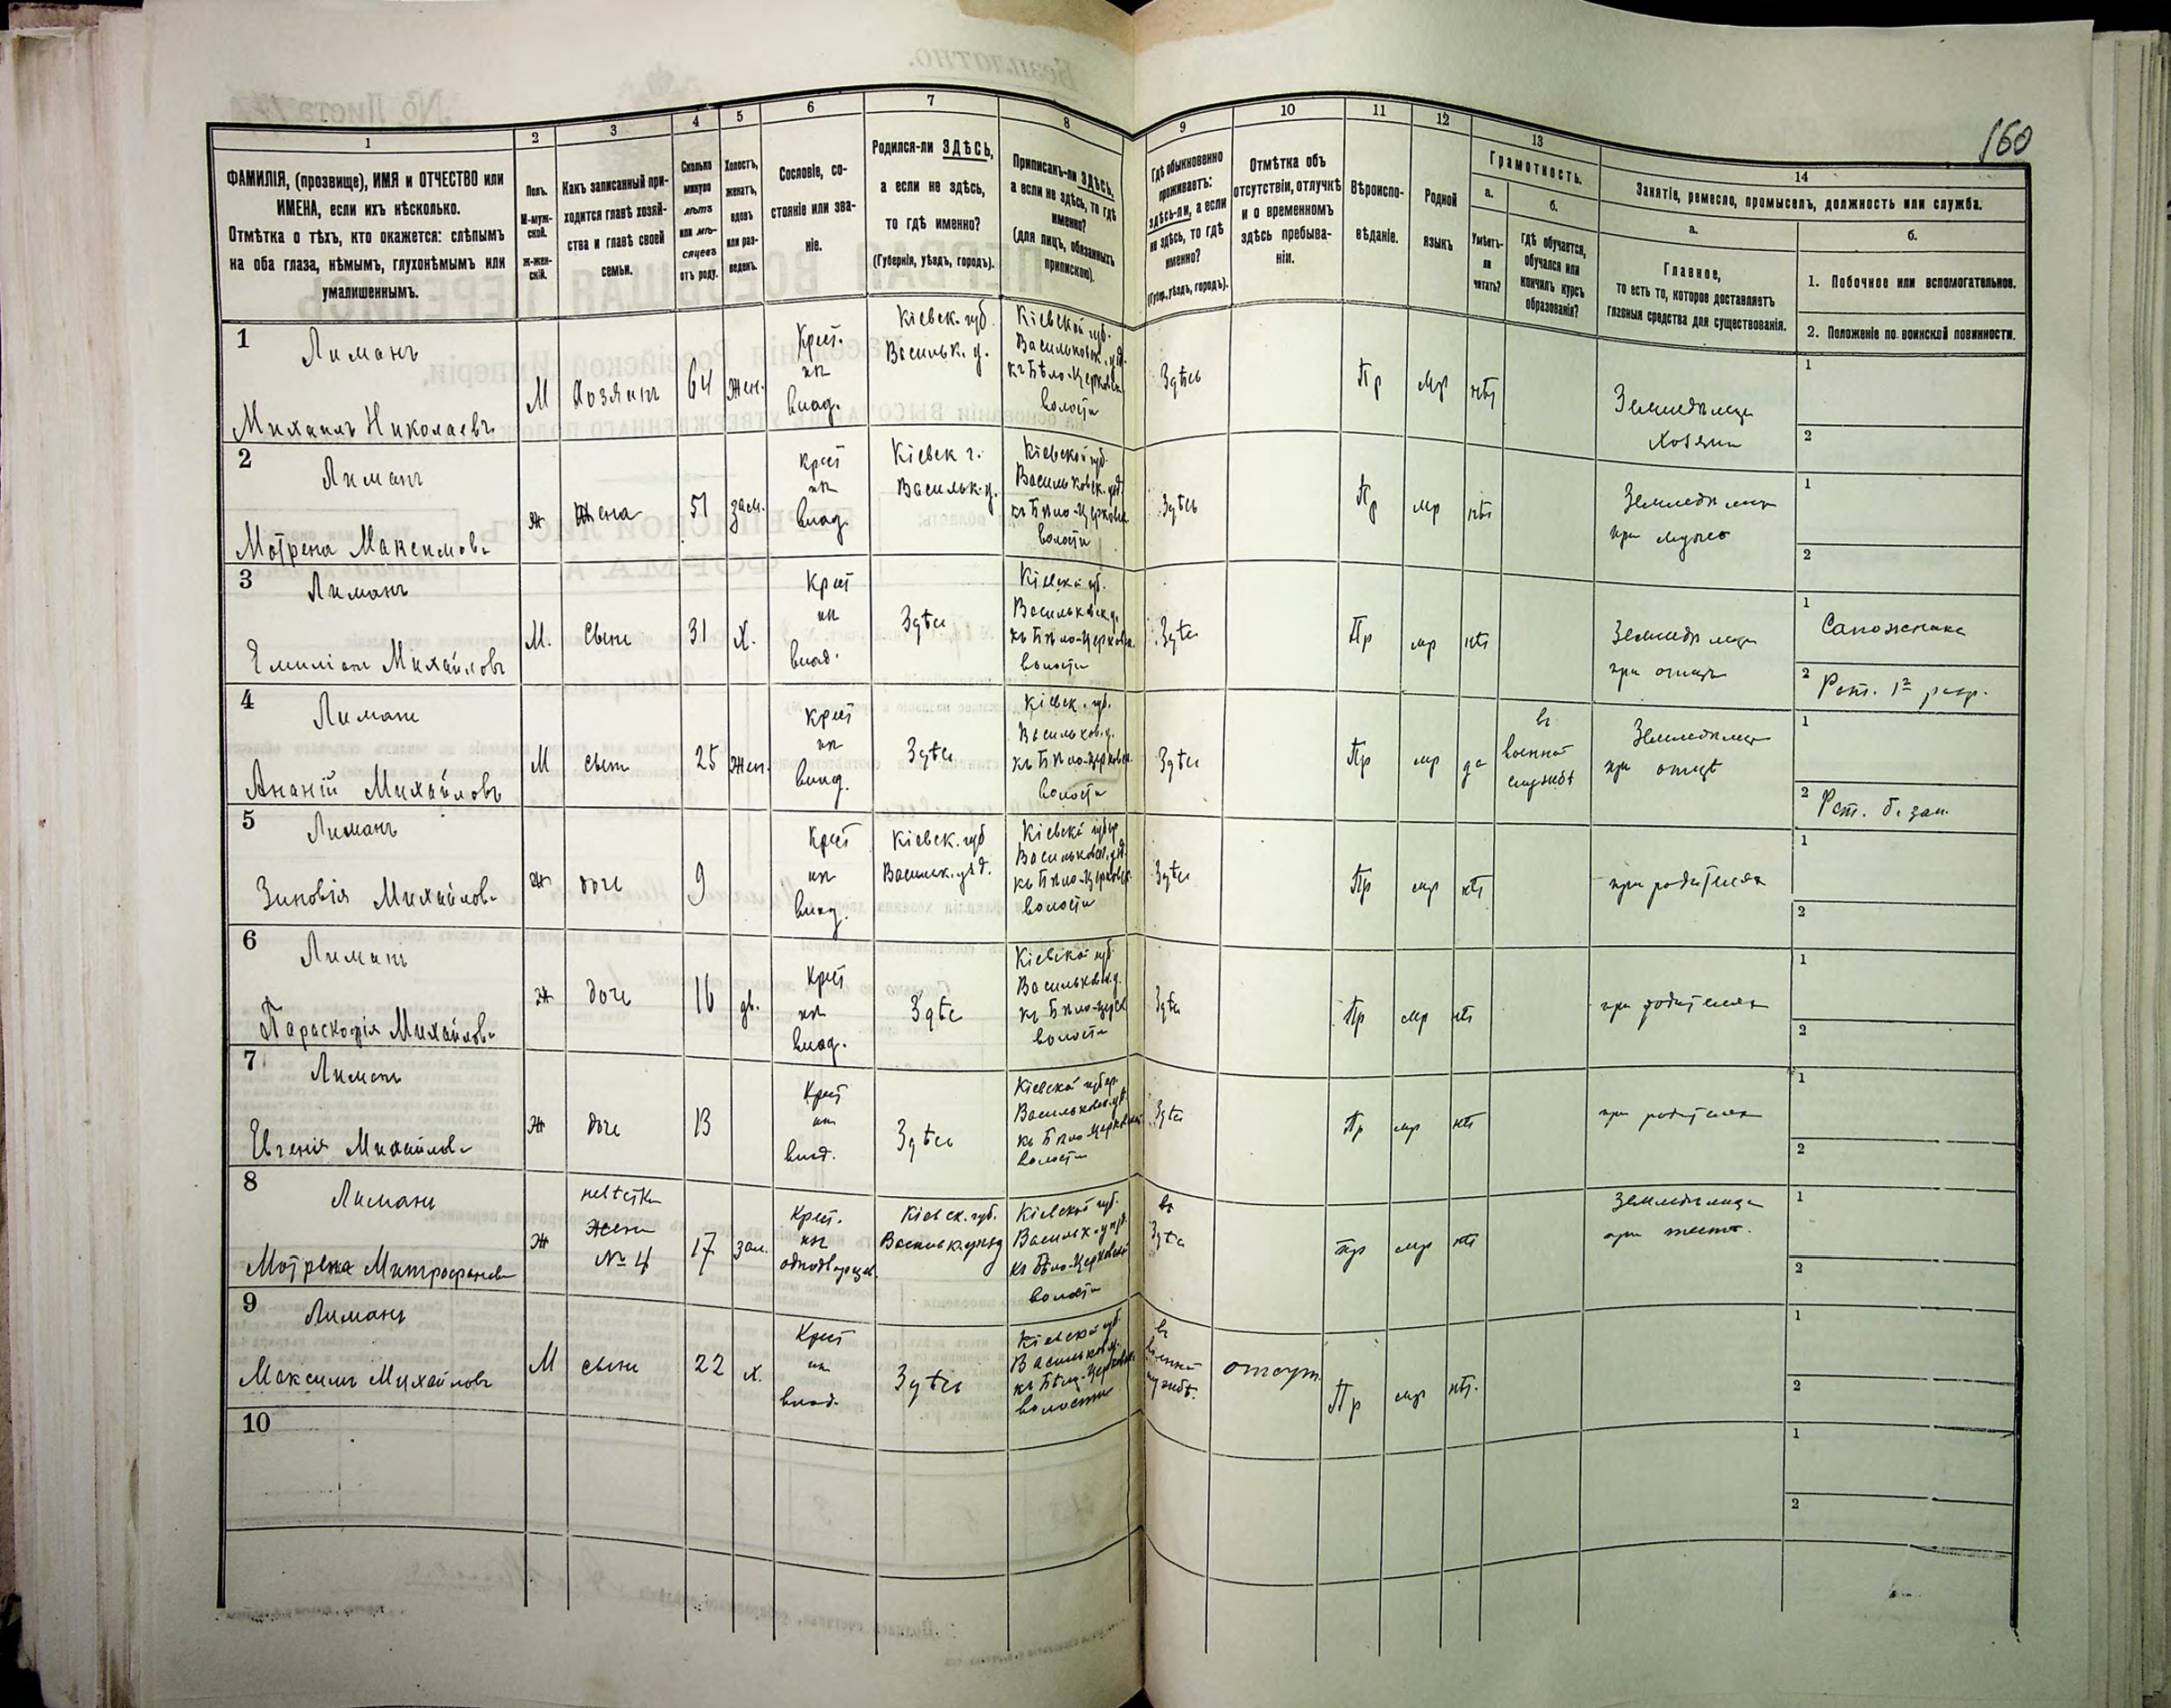 160
1
2
3
4
5
6
7
8
9
10
11
12
13
14
ФАМИЛІЯ, (прозвище), ИМЯ и ОТЧЕСТВО или
ИМЕНА, если ихъ нѣсколько.
Отмѣтка о тѣхъ, кто окажется: слѣпымъ
на оба глаза, нѣмымъ, глухонѣмымъ или
умалишеннымъ.
Полъ.
М-муж-
ской.
Ж-жен-
скій.
Какъ записанный при-
ходится главѣ хозяй-
ства и главѣ своей
семьи.
Сколько
минуло
лѣтъ
или мѣ-
сяцевъ
отъ роду.
Холостъ,
женатъ,
вдовъ
или раз-
веденъ.
Сословіе, со-
стояніе или зва-
ніе.
Родился-ли ЗДѢСЬ,
а если не здѣсь,
то гдѣ именно?
(Губернія, уѣздъ, городъ).
Приписанъ-ли ЗДѢСЬ,
а если не здѣсь, то гдѣ
именно?
(для лицъ, обязанныхъ
припискою).
Гдѣ обыкновенно
проживаетъ:
здѣсь-ли, а если
не здѣсь, то гдѣ
именно?
(Губер., уѣздъ, городъ).
Отмѣтка объ
отсутствіи, отлучкѣ
и о временномъ
здѣсь пребыва-
ніи.
Вѣроиспо-
вѣданіе.
Родной
языкъ
Грамотность.
а.
Умѣетъ-
ли
читать?
б.
гдѣ обучается,
обучался или
кончилъ курсъ
образованія?
Занятіе, ремесло, промыселъ, должность или служба.
а.
Главное,
то есть то, которое доставляетъ
главныя средства для существованія.
б.
1. Побочное или вспомогательное.
2. Положеніе по воинской повинности.
1
Лиманъ
Михаилъ Николаевъ
М
Хозяинъ
64
Жен.
Крест.
из
влад.
Кіевск. губ.
Васильк. у.
Кіевской губ.
Васильковск. уѣзд.
къ Бѣло-Церковск
волости
Здѣсь
Пр
мр
нѣт
Земледѣлец
Хозяин
1
2
2
Лиманъ
Мотрена Максимов
Ж
Жена
51
зам.
Крест
из
влад.
Кіевск г.
Васильк. у.
Кіевской губ.
Васильковск. уѣзд.
къ Бѣло-Церковск
волости
Здѣсь
Пр
мр
нѣт
при мужѣ
1
2
3
Лиманъ
Емиліан Михайловъ
М.
Сынъ
31
Х.
Крест
из
влад.
Здѣсь
Кіевской губ.
Васильковск у.
къ Бѣло-Церковск.
волости
Здѣсь
Пр
мр
нѣт
Земледѣлец
при отцѣ
1
Сапожника
2 Рат. 1го разр.
4
Лиманъ
Ананій Михайловъ
М
сынъ
25
Жен.
Крест
из
влад.
Здѣсь
Кіевск. губ.
Васильков. у.
къ Бѣло-Церковск.
волости
Здѣсь
Пр
мр
да
в
военной
службѣ
Земледѣлец
при отцѣ
1
2
5
Лиманъ
Зиновія Михайлов
Ж
дочь
9
Крест
из
влад.
Кіевск. губ
Васильк. уѣзд.
Кіевской губер
Васильковск. уѣзд.
къ Бѣло-Церковск.
волости
Здѣсь
Пр
мр
нѣт
при родителях
1
2
6
Лиманъ
Параскофія Михайлов
Ж
дочь
16
дѣ.
Крест
из
влад.
Здѣсь
Кіевской губ.
Васильковск у.
къ Бѣло-Церк
волости
Здѣсь
Пр
мр
нѣт
при родителях
1
2
7
Лиманъ
Евгенія Михайлов
Ж
дочь
13
Крест
из
влад.
Здѣсь
Кіевской губер.
Васильковск. уѣзд.
къ Бѣло-Церковской
волости
Здѣсь
Пр
мр
нѣт
при родителях
1
2
8
Лиманъ
Мотрена Митрофанов
Ж
невѣстка
Жена
№ 4
17
зам.
Крест.
из
однодворцев.
Кіевск. губ.
Васильк. уѣзд
Кіевской губ.
Васильк. уѣзд.
къ Бѣло-Церковской
волости
Здѣсь
пр
мр
нѣт
1
2
9
Лиманъ
Максимъ Михайловъ
М
сынъ
22
х.
Крест
из
влад.
Здѣсь
Кіевской губ
Васильков у.
къ Бѣло-Церковск.
волости
в
военной
службѣ.
отсут.
Пр
мр
нѣт.
1
2
10
1
2